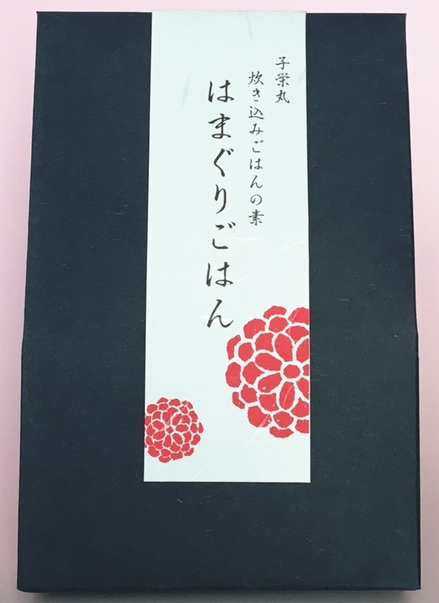 子栄丸
炊き込みごはんの素
はまぐりごはん